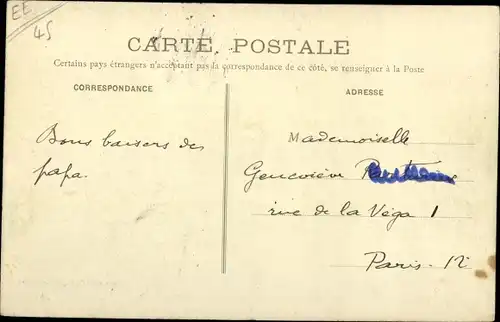 EE
45
CARTE POSTALE
Certains pays étrangers n'acceptant pas la correspondance de ce côté, se renseigner à la Poste
CORRESPONDANCE
ADRESSE
Bons baisers de
papa.
Mademoiselle
Geneviève
rue de la Véga 1
Paris - 12